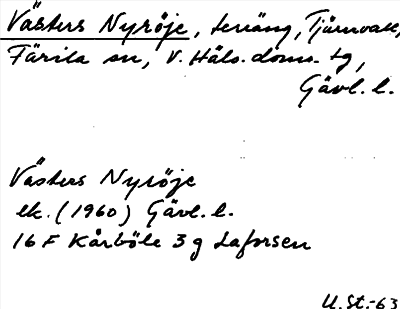 Västers Nyröje, teräng, Tjärnvall,
Färila sn, V. Häls. doms. tg,
Gävl. l.
Västers Nyröje
ek. (1960) Gävl. l.
16 F Kårböle 3 g Laforsen
U. St. -63